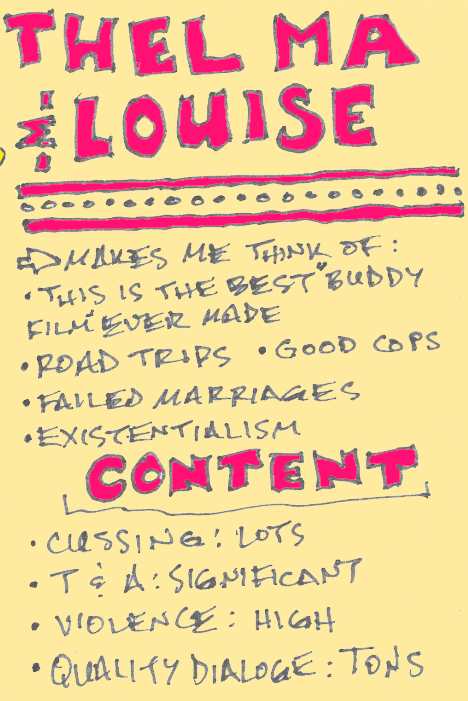 THELMA
& LOUISE
⇨ MAKES ME THINK OF:
• THIS IS THE BEST "BUDDY
FILM" EVER MADE
• ROAD TRIPS • GOOD COPS
• FAILED MARRIAGES
• EXISTENTIALISM
CONTENT
• CUSSING: LOTS
• T & A: SIGNIFICANT
• VIOLENCE: HIGH
• QUALITY DIALOGE: TONS